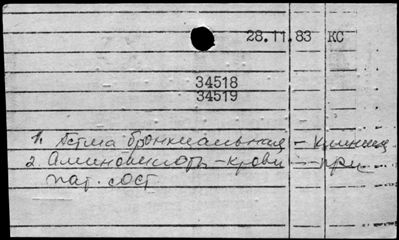 28.11.83 КС
34518
34519
1. Астма бронхиальная - клиника
2. Аминокислоты - крови - при
пат. сост